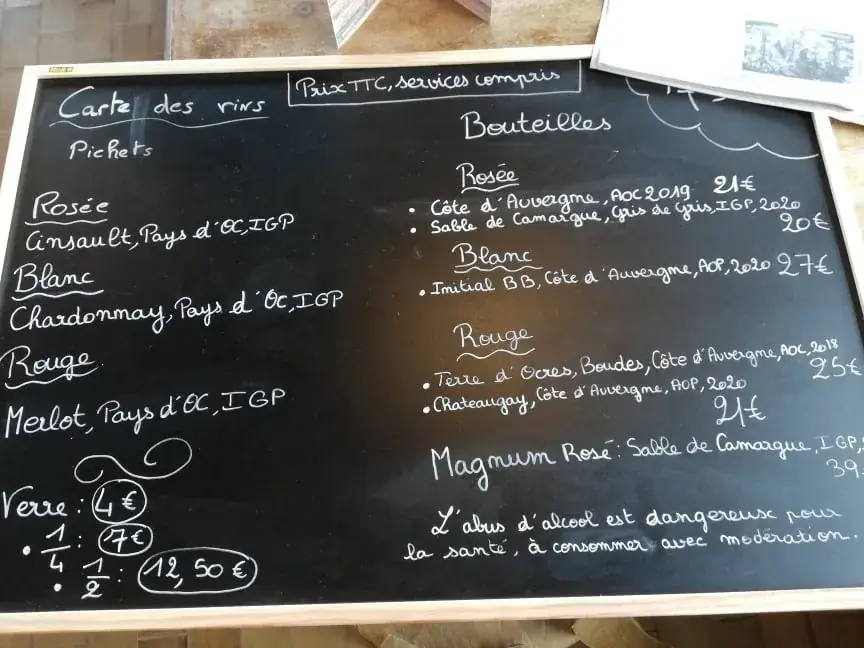 Carte des vins
Prix TTC, services compris
Pichets
Rosée
Cinsault, Pays d'OC, IGP
Blanc
Chardonnay, Pays d'OC, IGP
Rouge
Merlot, Pays d'OC, IGP
Verre : 4€
• 1/4 : 7€
• 1/2 : 12,50€
Bouteilles
Rosée
• Côte d'Auvergne, AOC 2019 21€
• Sable de Camargue, Gris de Gris, IGP, 2020
20€
Blanc
• Initial BB, Côte d'Auvergne, AOP, 2020 27€
Rouge
• Terre d'Ocres, Boudes, Côte d'Auvergne, AOC, 2018
25€
• Chateaugay, Côte d'Auvergne, AOP, 2020
21€
Magnum Rosé : Sable de Camargue, IGP,
39
L'abus d'alcool est dangereuse pour
la santé, à consommer avec modération.